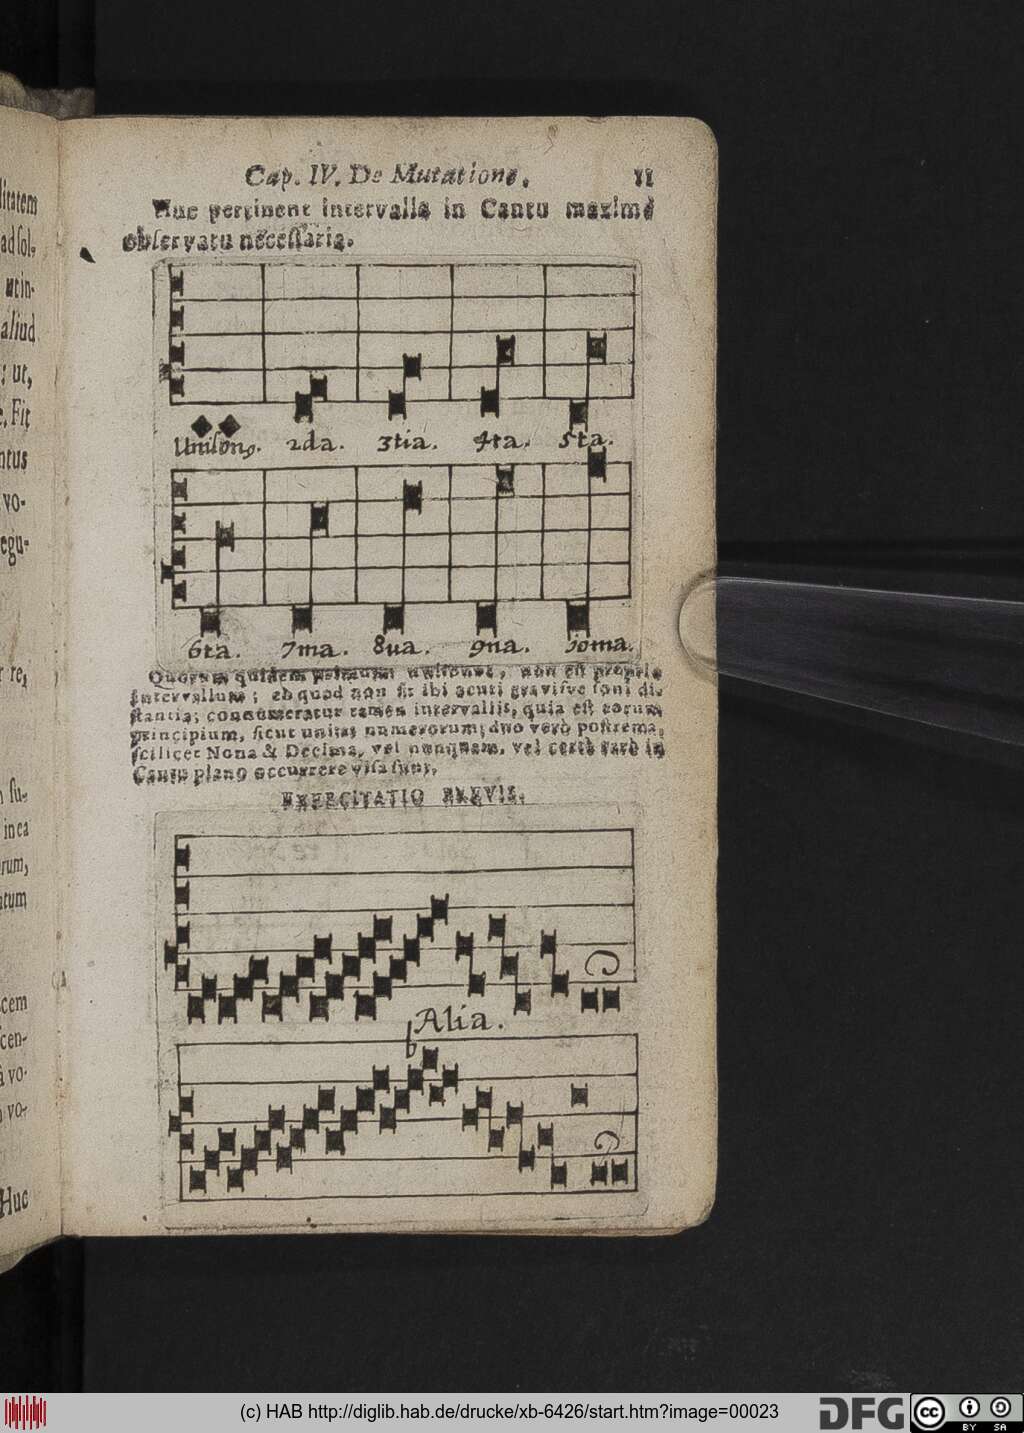 Cap. IV. De Mutatione. 11
Huc pertinent intervalla in Cantu maximè
observatu necessaria.
Unisonꝰ. 2da. 3tia. 4ta. 5ta.
6ta. 7ma. 8va. 9na. 10ma.
Quorum quidem primum unisonus, non est propriè
intervallum; eb quod non sit ibi acuti gravisve soni di-
stantia; connumeratur tamen intervallis, quia est eorum
principium, sicut unitas numerorum; duo verò postrema,
scilicet Nona & Decima, vel nunquam, vel certè rarò in
Cantu plano occurrere visa sunt.
EXERCITATIO BREVIS.
Alia.
b
litatem
ad sol-
utin-
aliud
: ut,
. Fit
ntus
vo-
egu-
r re,
su-
in ea
rum,
atum
scem
scen-
à vo-
vo-
Huc
(c) HAB http://diglib.hab.de/drucke/xb-6426/start.htm?image=00023
DFG cc BY SA